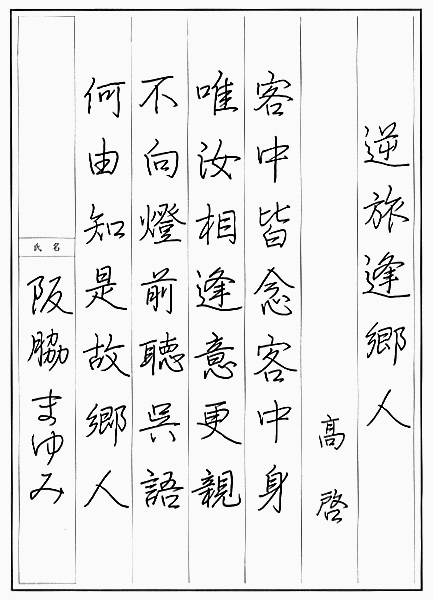 逆旅逢郷人
高啓
客中皆念客中身
唯汝相逢意更親
不向燈前聴呉語
何由知是故郷人
氏名
阪脇まゆみ